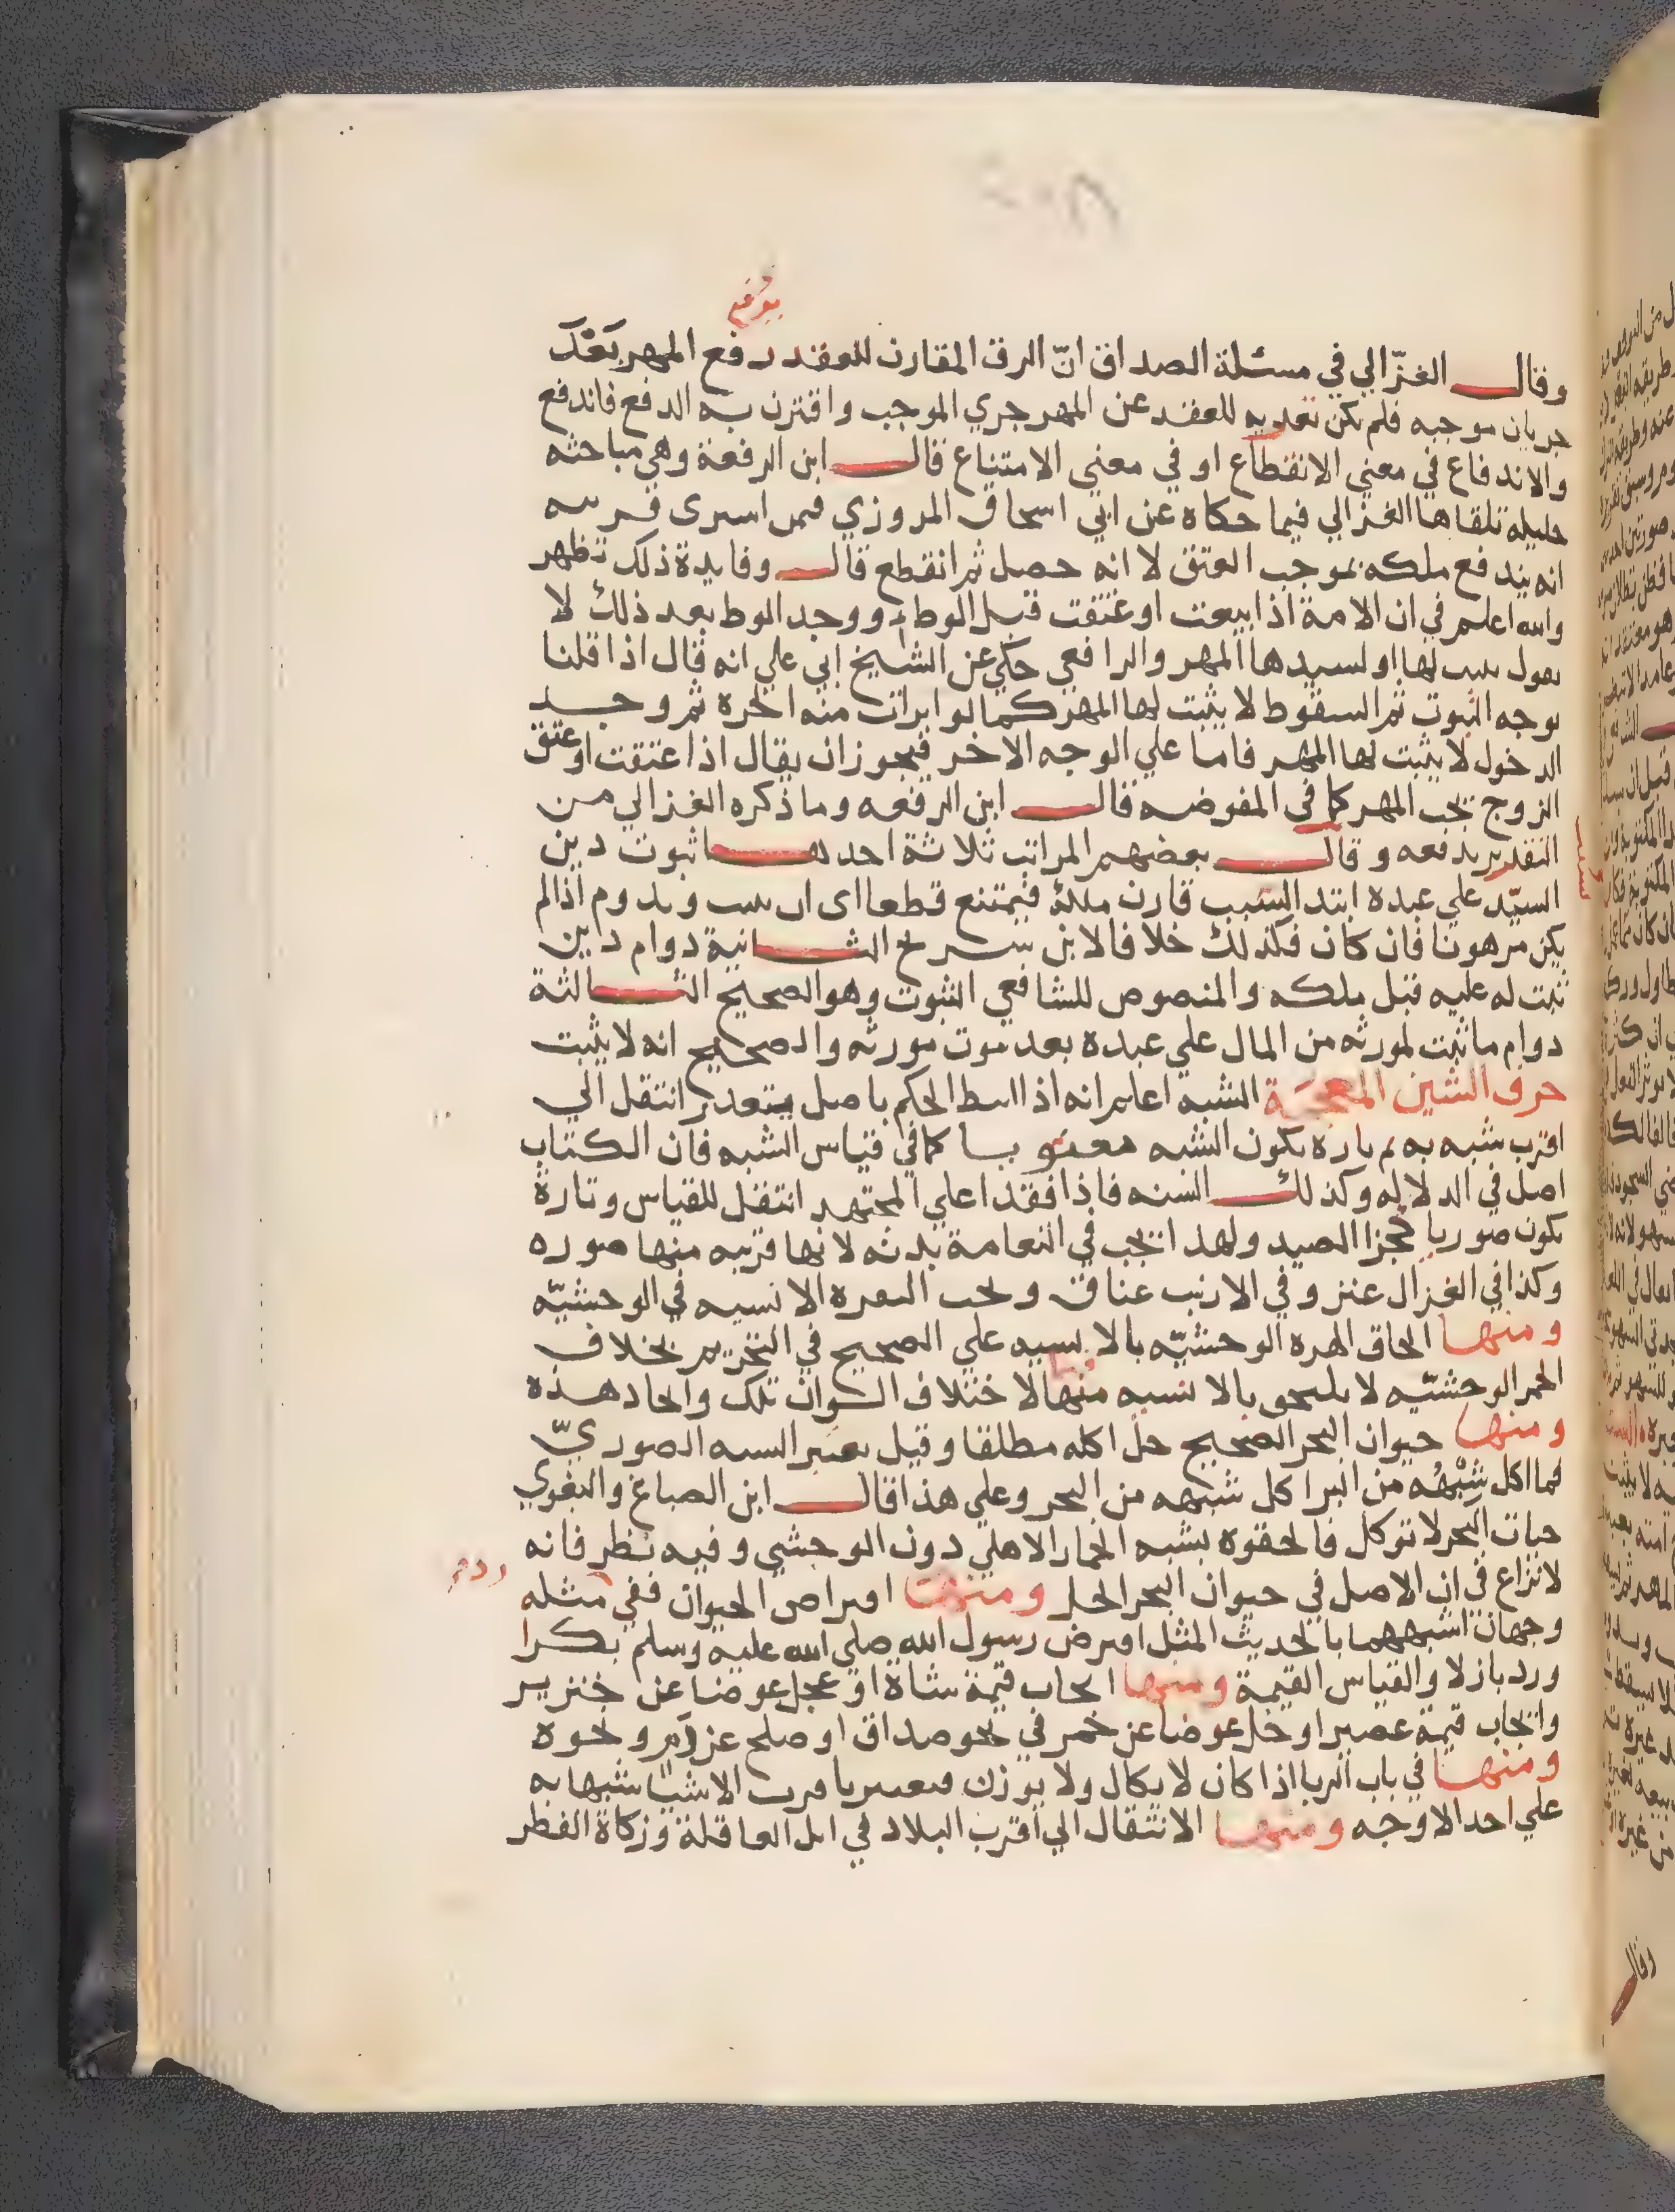 وقال الغزّالي في مسئلة الصداق انّ الرق المقارن للعقد دفع المهر بَعْدَ
جريان موجبه فلم يكن تعديه للعقد عن المهر جري الموجب واقترن به الدفع فاندفع
والاندفاع في معني الانقطاع او في معني الامتناع قال ابن الرفعة وهي مباحثه
جليله تلقاها الغزالي فيما حكاه عن ابي اسحاق المروزي فيمن اسرى قريبه
انه يندفع ملكه بموجب العتق لا انه حصل ثم انقطع قال وفايدة ذلك تظهر
والله اعلم في ان الامة اذا بيعت او عتقت قبل الوطء ووجد الوط بعد ذلك لا
يقول يثبت لها او لسيدها المهر والرافعي حكي عن الشيخ ابي علي انه قال اذا قلنا
بوجه الثبوت ثم السقوط لا يثبت لها المهر كما لو ابرات منه الحرة ثم وجد
الدخول لا يثبت لها المهر فاما علي الوجه الاخر فيجوز ان يقال اذا عتقت او عتق
الزوج يجب المهر كما في المفوضه قال ابن الرفعه وما ذكره الغزالي من
التقدير يدفعه وقال بعضهم المراتب ثلاثة احدها ثبوت دين
السيّد علي عبده ابتدا لسبب قارن ملكه فيمتنع قطعا اى ان يثبت ويدوم اذا لم
يكن مرهونا فان كان فكذلك خلافا لابن سريج الثانية دوام دين
ثبت له عليه قبل ملكه والمنصوص للشافعي الثبوت وهو الصحيح الثالثة
دوام ما ثبت لمورثه من المال علي عبده بعد موت مورثه والصحيح انه لا يثبت
حرف الشين المعجمة الشبه اعلم انه اذا انيط الحكم باصل يتعدر انتقل الي
اقرب شبه به ثم تارة يكون الشبه معنويا كما في قياس الشبه فان الكتاب
اصل في الدلاله وكذلك السنه فاذا فقدا علي المجتهد انتقل للقياس وتارة
يكون صوريا كجزا الصيد ولهذا يجب في النعامة بدنه لانها قريبه منها صوره
وكذا في الغزال عنز وفي الارنب عناق وتجب البقره الانسيه في الوحشيّه
ومنها الحاق الهره الوحشيّه بالانسيه علي الصحيح في التحريم بخلاف
الحمر الوحشيّه لا يلحق بالانسيه منها لاختلاف الوان تلك واتحاد هذه
ومنها حيوان البحر الصحيح حل اكله مطلقا وقيل يعتبر الشبه الصوريّ
فما اكل شَبْهُه من البر اكل شبهه من البحر وعلي هذا قال ابن الصباغ والبغوي
حمار البحر لا توكل فالحقوه بشبه الحمار الاهلي دون الوحشي وفيه نظر فانه
لا نزاع في ان الاصل في حيوان البحر الحل ومنها اقراض الحيوان ففي مثله
وجهان اشبههما بالحديث المثل اقترض رسول الله صلي الله عليه وسلم بكرا
ورد بازلا والقياس القيمة ومنها ايجاب قيمة شاة او عجل عوضا عن خنزير
وايجاب قيمة عصير او خل عوضا عن خمر في نحو صداق او صلح عن دم ونحوه
ومنها في باب الربا اذا كان لا يكال ولا يوزن فيعتبر باقرب الاشيا شبها به
علي احد الاوجه ومنها الانتقال الي اقرب البلاد في ابل العاقلة وزكاة الفطر